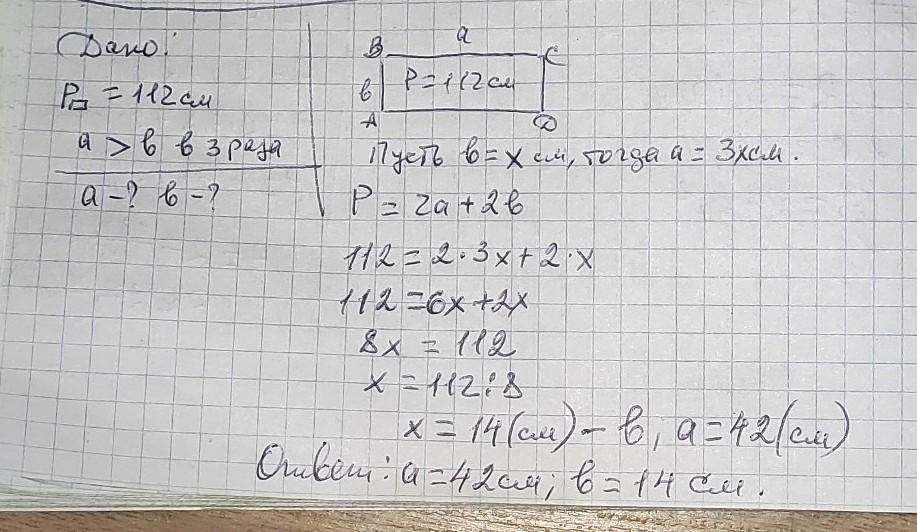 Дано:
P▭ = 112 см
a > b в 3 раза
a - ? b - ?
B a C
b P = 112 см
A D
Пусть b = x см, тогда a = 3x см.
P = 2a + 2b
112 = 2 · 3x + 2 · x
112 = 6x + 2x
8x = 112
x = 112 : 8
x = 14 (см) - b, a = 42 (см)
Ответ: a = 42 см; b = 14 см.